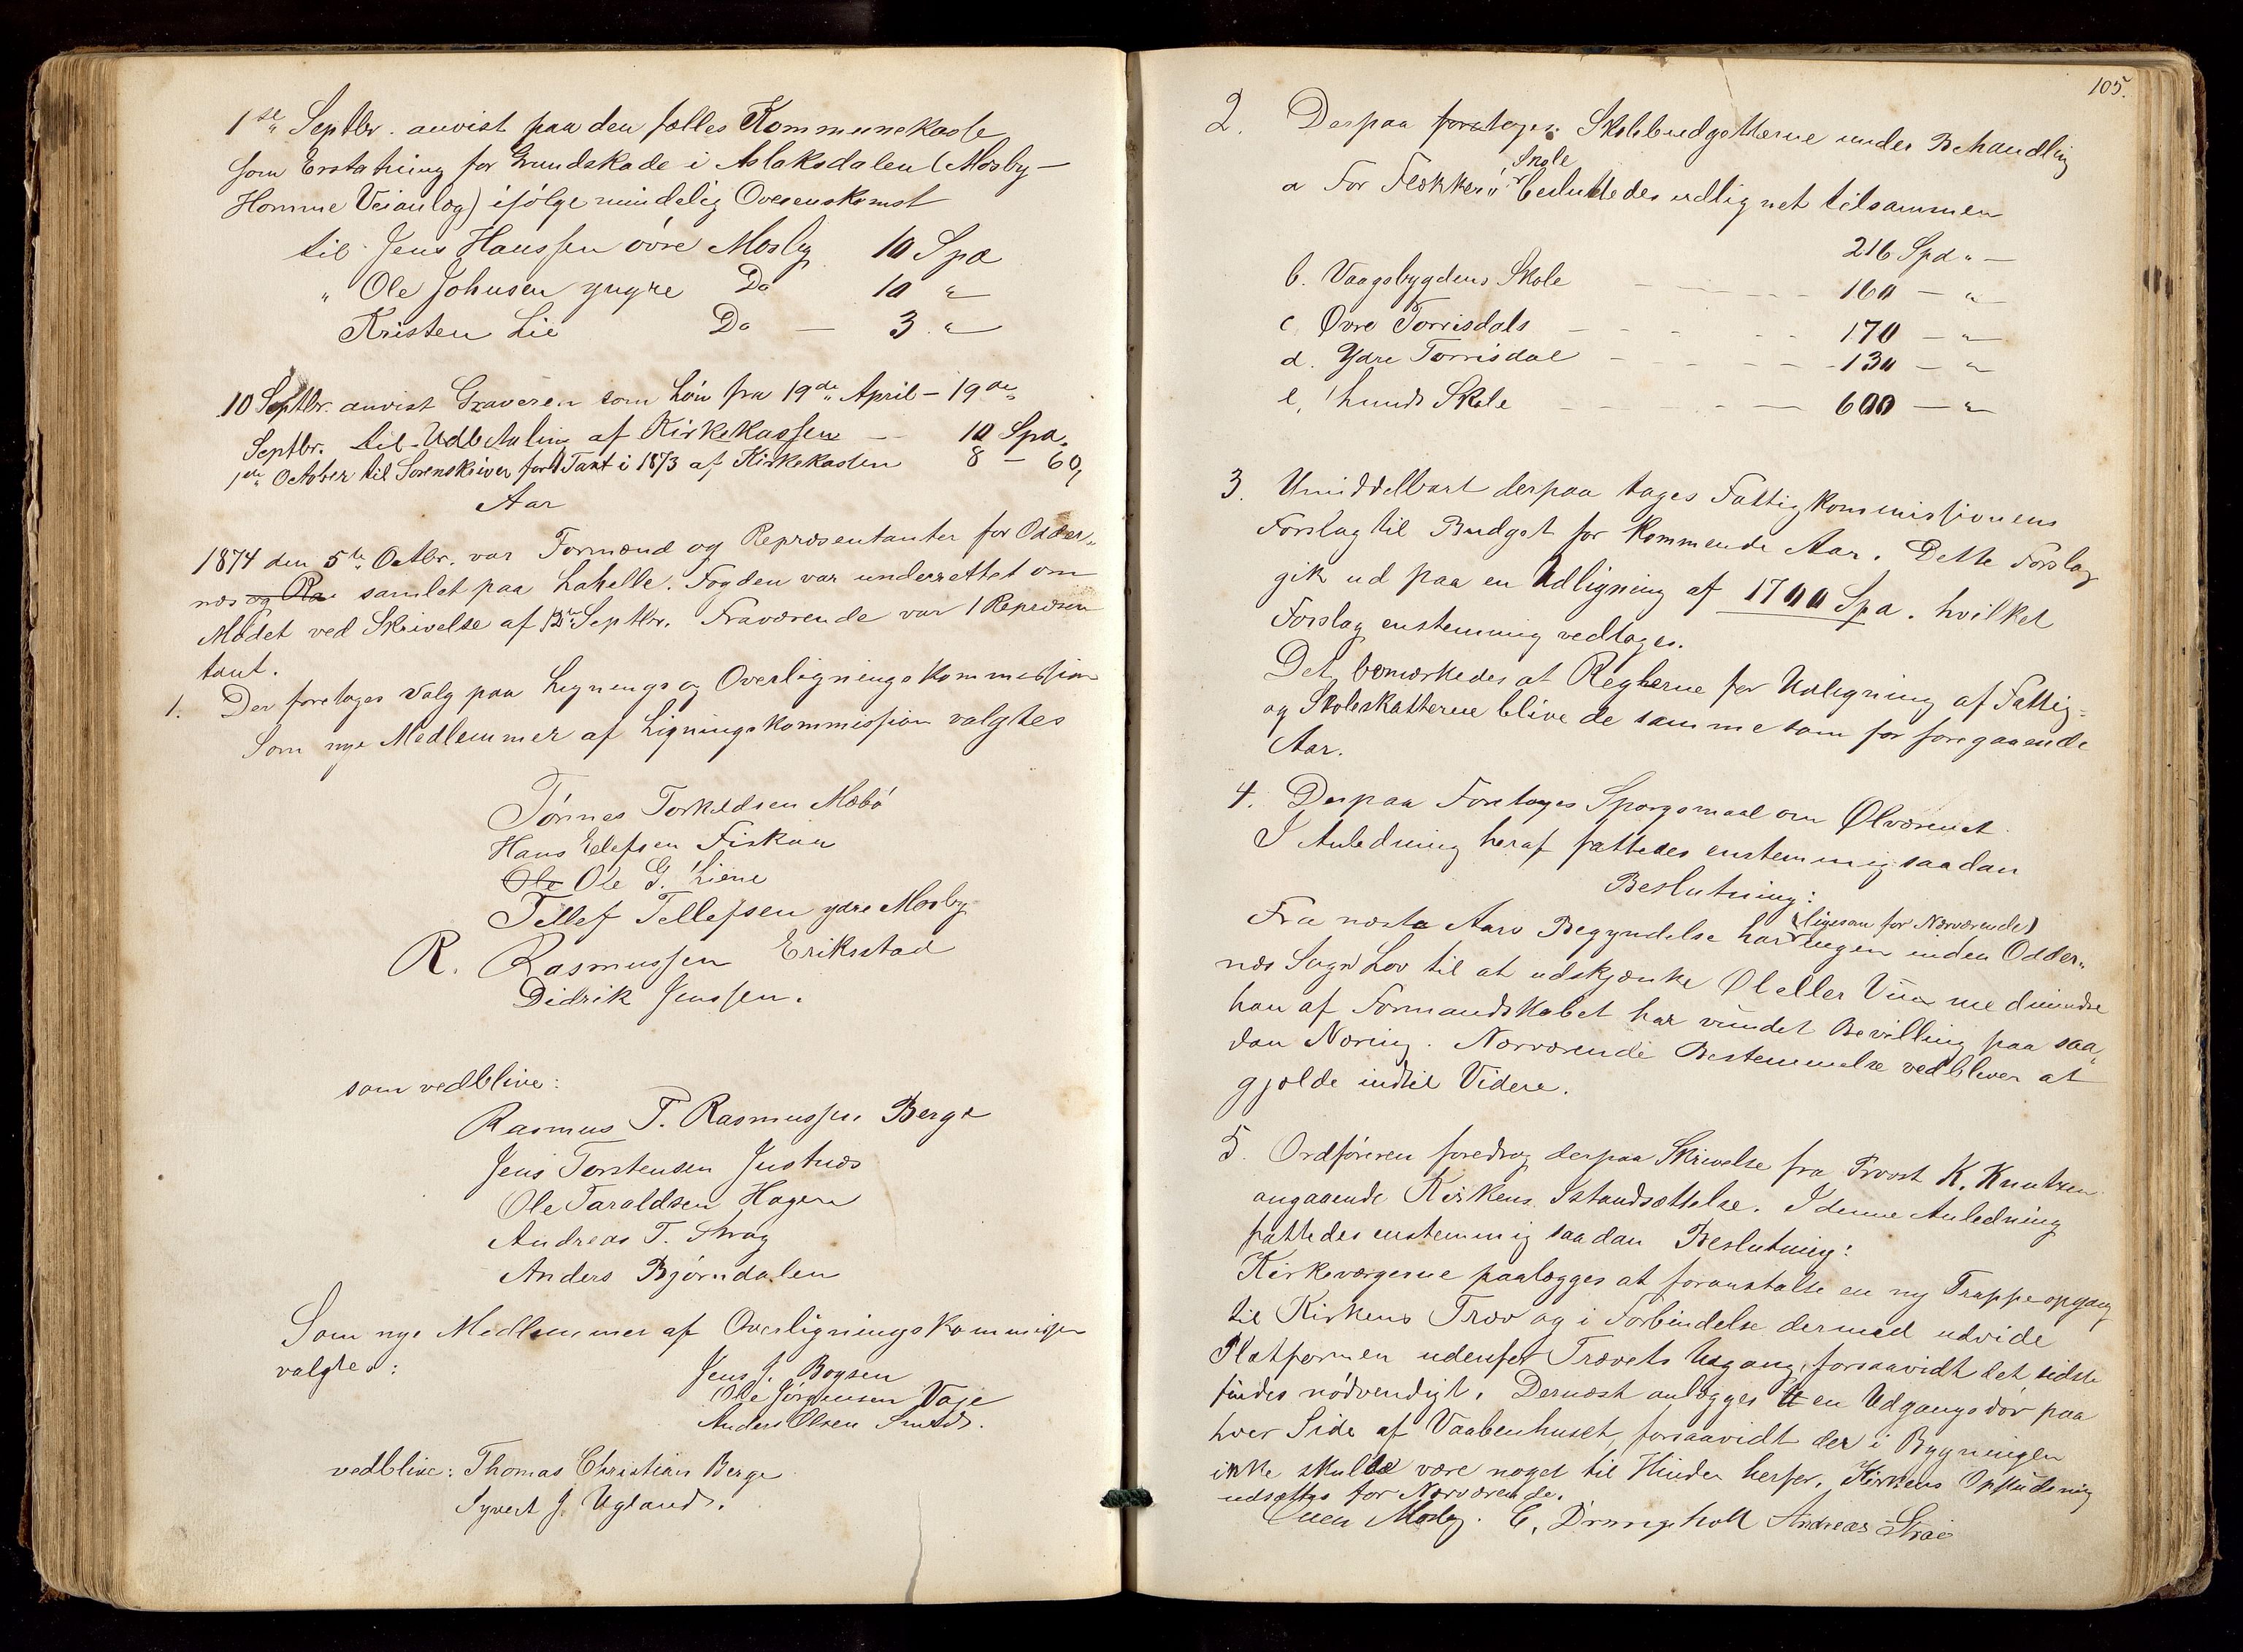 1ste Septbr. anvist paa den fælles Kommunekasse
som Erstatning for Grundskade i Aslaksdalen (Mosby-
Homme Veianlæg) ifølge mindelig Overenskomst
til Jens Hanssen øvre Mosby 10 Spd
" Ole Johnsen yngre Do 10 "
Kristen Lie Do — 3 "
10 Septbr. anvist Graveren som Løn fra 19de April – 19de
Septbr. til Udbetaling af Kirkekassen — 10 Spd.
1ste October til Sorenskriver for Taxt i 1873 af Kirkekassen 8 – 60,
Aar
1874 den 5te Octbr. var Formænd og Repræsentanter for Odder-
næs og Ra samlet paa Lahelle. Fogden var underrettet om
Mødet ved Skrivelse af 12te Septbr. Fraværende var 1 Repræsen
tant.
1. Der foretages Valg paa Lignings og Overligningskommission
Som nye Medlemmer af Ligningskommission valgtes
Tønnes Torkildsen Mæbø
Hans Ellefsen Fiskaa
Ole Ole G. Liene
Tellef Tellefsen ydre Mosby
R. Rasmussen Eriksstad
Didrik Jenssen.
som vedblive:
Rasmus T. Rasmussen Berge
Jens Torstensen Justnæs
Ole Taraldsen Hagen
Andreas T. Stray
Anders Bjørndalen
Som nye Medlemmer af Overligningskommission
valgtes:
Jens J. Boysen
Ole Jørgensen Voje
Anders Olsen
vedblive: Thomas Christian Berge
Syvert J. Ugland.
105.
2. Derpaa foretages Skolebudgetterne under Behandling
Skole
a For Flækkerø besluttedes udlignet tilsammen
216 Spd " —
b. Vaagsbygdens Skole — 160 — "
c. Øvre Torrisdals — 170 — "
d. Ydre Torrisdal — 130 — "
e, Lunds Skole — 600 — "
3. Umiddelbart derpaa tages Fattigkommissionens
Forslag til Budget for kommende Aar. Dette Forslag
gik ud paa en Udligning af 1700 Spd. hvilket
Forslag enstemmig vedtages.
Det bemærkedes at Reglerne for Udligning af Fattig-
og Skoleskatterne blive de samme som for foregaaende
Aar.
4. Derpaa Foretages Spørgsmaal om Ølværenet
I Anledning heraf fattedes enstemmig saadan
Beslutning:
(ligesom for Nærværende)
Fra næste Aars Begyndelse har ingen inden Odder-
næs Sogn Lov til at udskjænke Øl eller Viin med mindre
han af Formandskabet har vundet Bevilling paa saa-
dan Næring. Nærværende Bestemmelse vedbliver at
gjelde indtil Videre.
5. Ordføreren foredrog derpaa Skrivelse fra Provst K. Knutzen
angaaende Kirkens Istandsættelse. I denne Anledning
fattedes enstemmig saadan Beslutning:
Kirkeværgerne paalægges at foranstalte en ny Trappeopgang
til Kirkens Træv og i Forbindelse dermed udvide
Platformen udenfor Trævets Udgang, forsaavidt det sidste
findes nødvendigt. Dernæst anlægges en Udgangsdør paa
hver Side af Vaabenhuset, forsaavidt der i Bygningen
ikke skulde være noget til Hinder herfor. Kirkens Opfudsning
udsættes for Nærværende.
Mosby. C. Drangsholt Andreas Strai